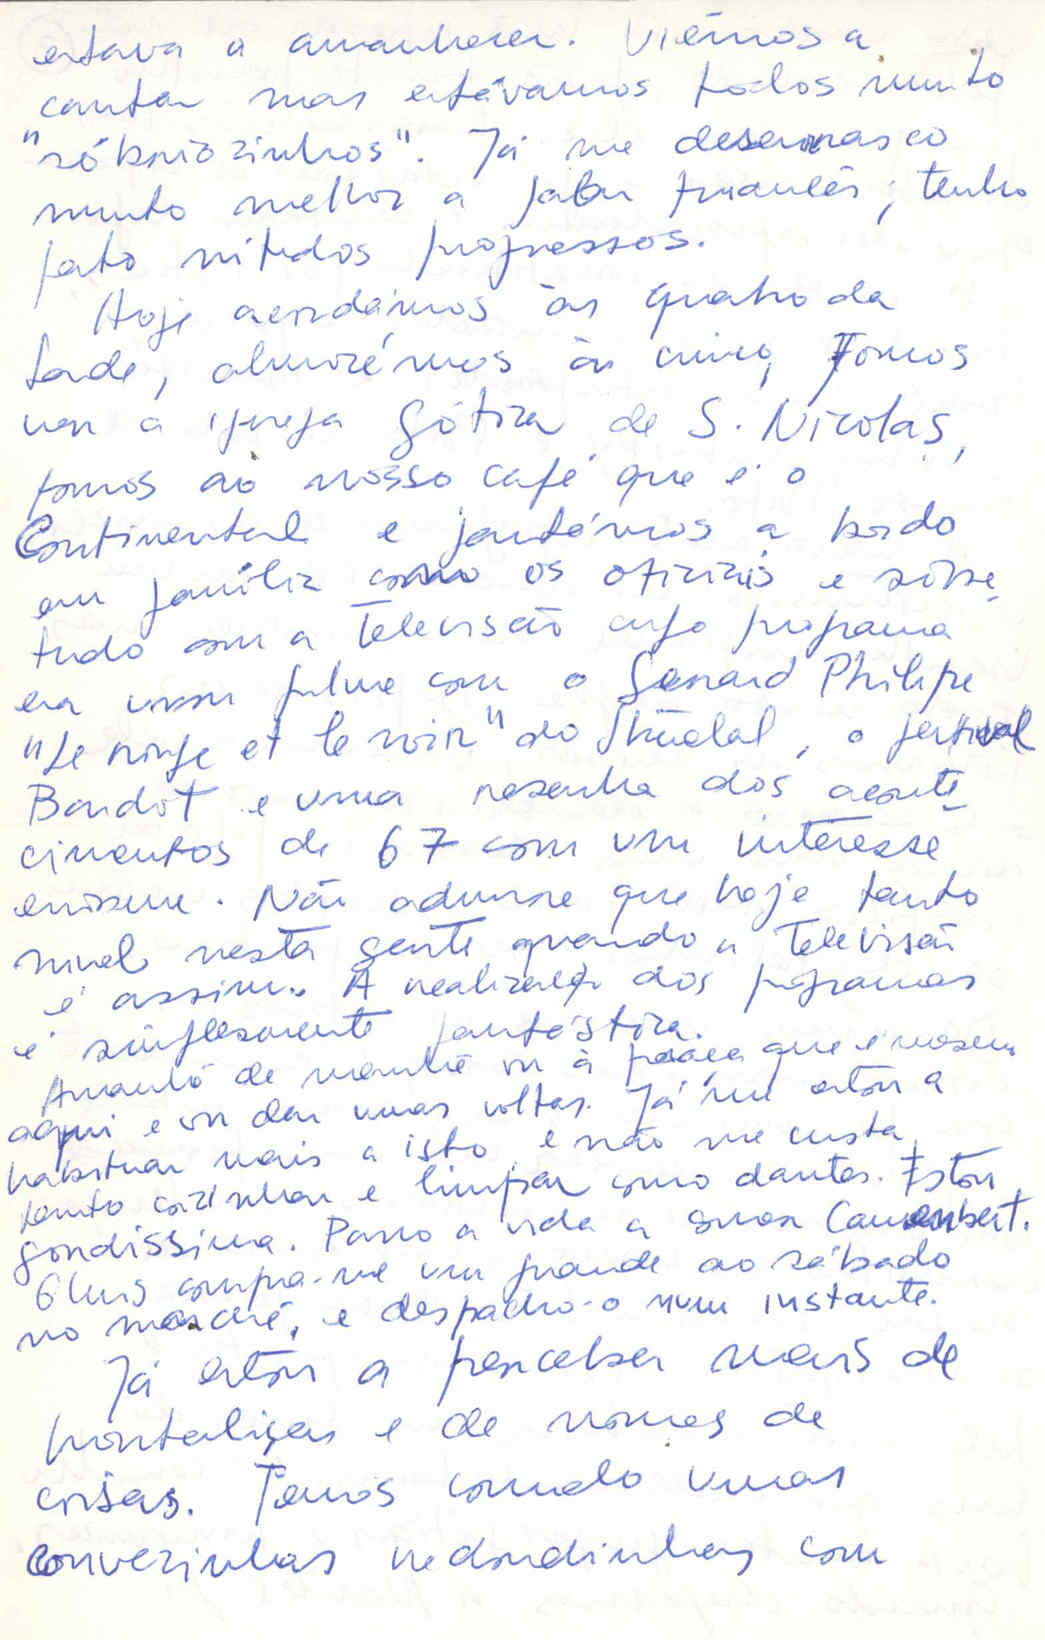 estava a amanhecer. Viémos a
cantar mas estávamos todos muito
"sóbriozinhos". Já me desenrasco
muito melhor a falar francês; tenho
feito nítidos progressos.
Hoje acordámos às quatro da
tarde, almoçámos às cinco, Fomos
ver a igreja Gótica de S. Nicolas,
fomos ao nosso café que é o
Continental e jantámos a bordo
em família como os oficiais e sobre
tudo com a Televisão cujo programa
era um filme com o Gerard Philipe
"Le rouge et le noir" do Sthendal, o festival
Bardot e uma resenha dos aconte
cimentos de 67 com um interesse
enorme. Não admira que haja tanto
nível nesta gente quando a Televisão
é assim. A realização dos programas
é simplesmente fantástica.
Amanhã de manhã vou à praça que é mesmo
aqui e vou dar umas voltas. Já me estou a
habituar mais a isto e não me custa
tanto cozinhar e limpar como dantes. Estou
gordíssima. Passo a vida a comer Camembert.
O Luís compra-me um grande ao sábado
no marché, e despacho-o num instante.
Já estou a perceber mais de
hortaliças e de nomes de
coisas. Temos comido umas
couvezinhas redondinhas com